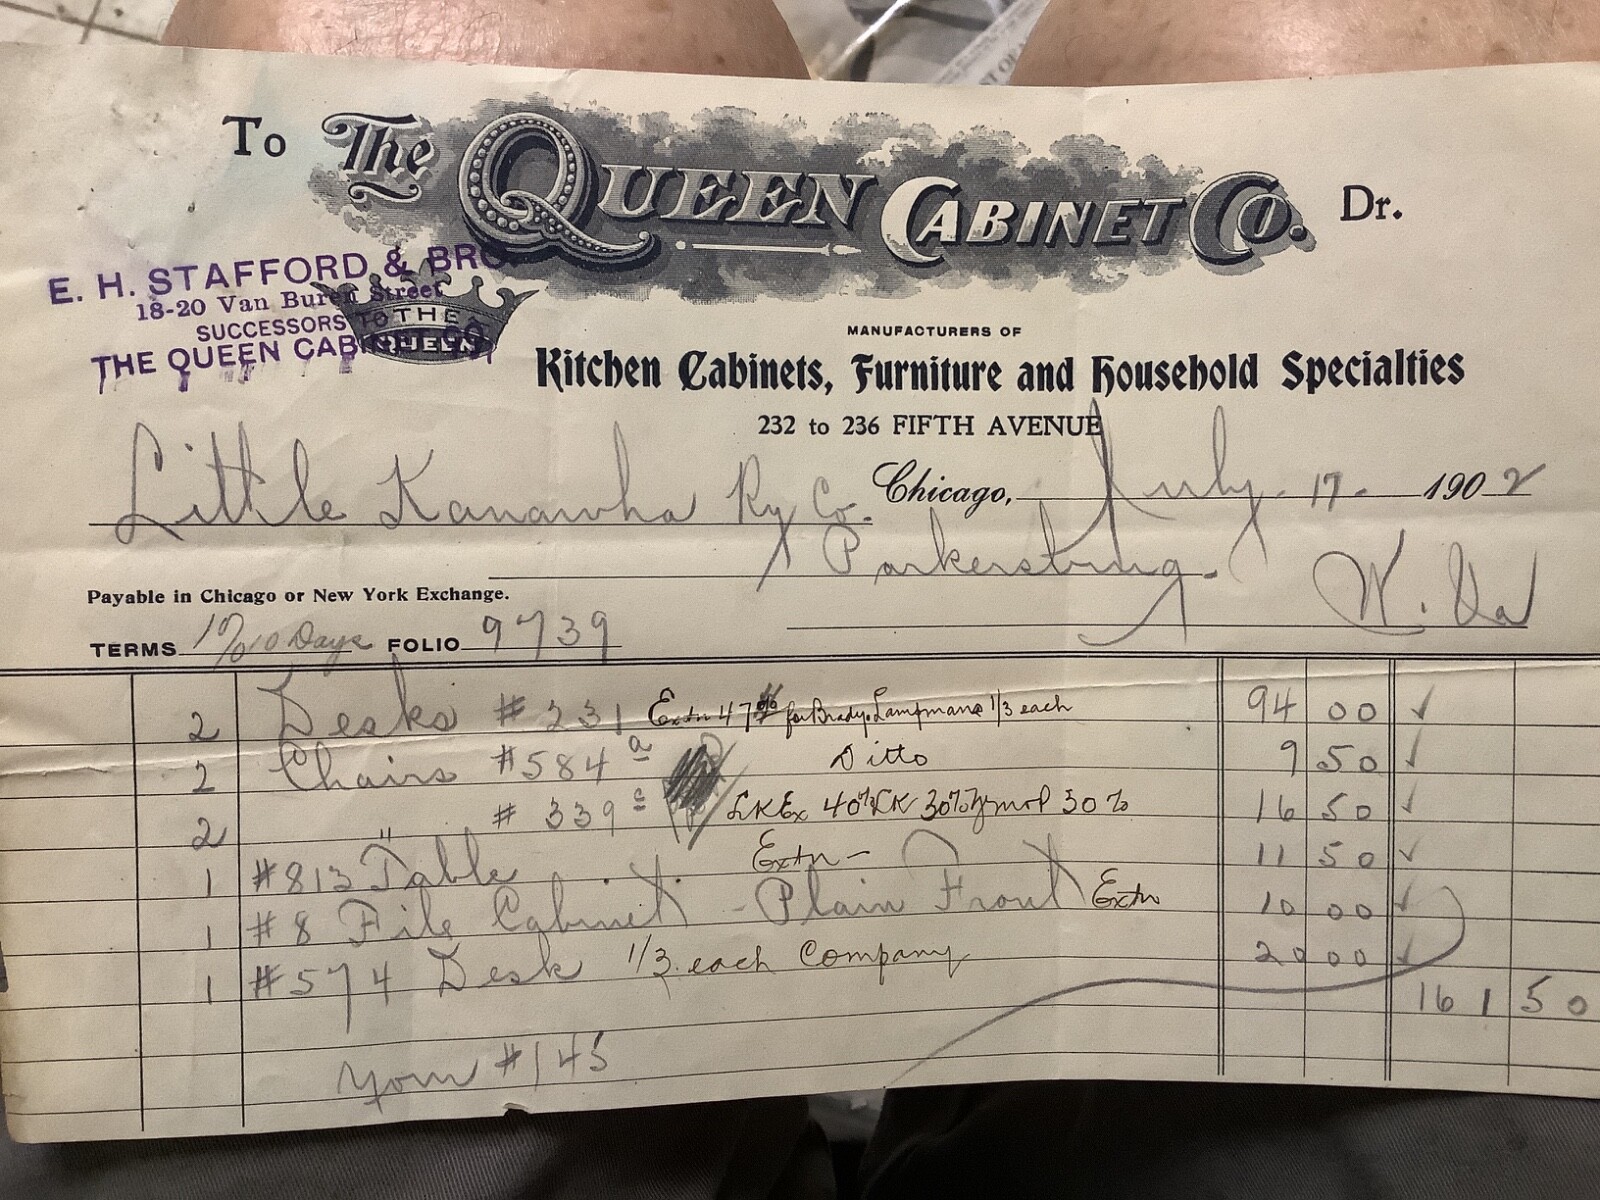 To The Queen Cabinet Co. Dr.
E. H. STAFFORD & BRO
18-20 Van Buren Street
SUCCESSORS TO
THE QUEEN CABINET CO.
THE
QUEEN
MANUFACTURERS OF
Kitchen Cabinets, Furniture and Household Specialties
232 to 236 FIFTH AVENUE
Little Kanawha Ry Co. Chicago, July 17 1902
Parkersburg. W. Va
Payable in Chicago or New York Exchange.
TERMS 10 Days FOLIO 9739
2 Desks # 231 Extn 47 for Brady. Lampman 1/3 each 94 00 ✓
2 Chairs #584 a Ditto 9 50 ✓
2 " # 339 c LKEx 40% LK 30% 30% 16 50 ✓
1 #813 Table Extn - 11 50 ✓
1 #8 File Cabinet - Plain Front Extn 10 00 ✓
1 #574 Desk 1/3 each Company 20 00 ✓
161 50
Your #145